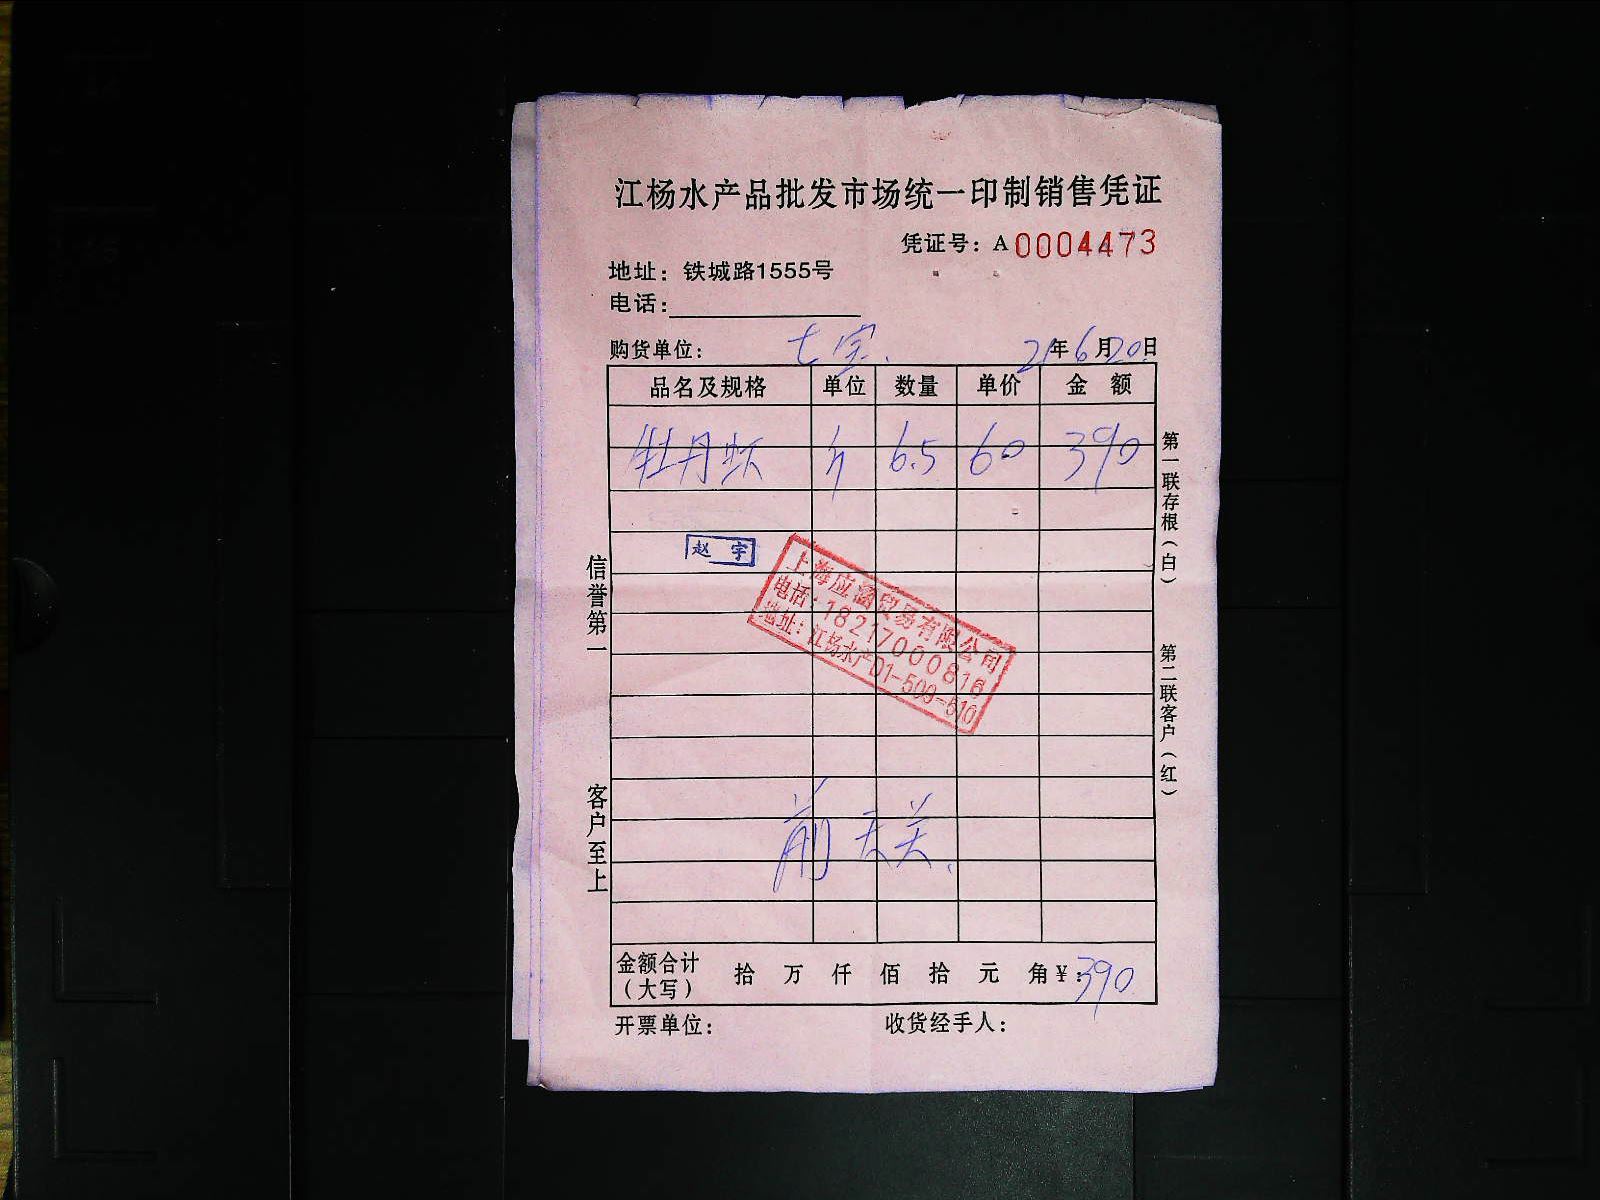 江杨水产品批发市场统一印制销售凭证
凭证号：A 0004473
地址：铁城路1555号
电话：
购货单位： 七宝. 21年6月20日
品名及规格 单位 数量 单价 金 额
牡丹虾 斤 6.5 60 390
赵 宇
上海应涵贸易有限公司
电话：18217000816
地址：江杨水产D1-509-510
前天关.
金额合计（大写） 拾 万 仟 佰 拾 元 角 ¥：390
开票单位： 收货经手人：
信誉第一
客户至上
第一联存根（白）
第二联客户（红）